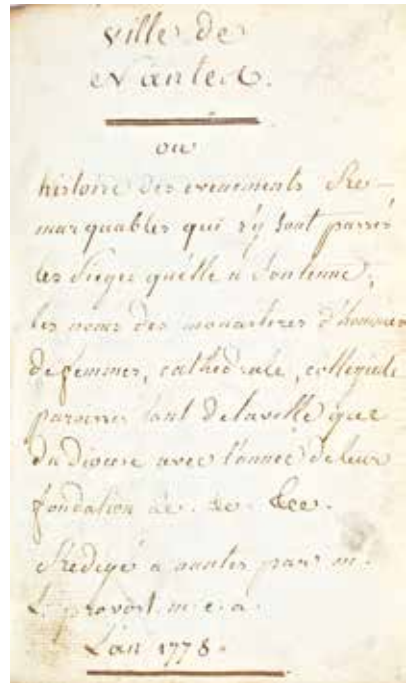 ville de
Nantes.
ou
histoire des evenements Re-
marquables qui s'y sont passés
les sieges qu'elle a soutenue,
les noms des monasteres d'hommes
de femmes, cathedrale, collegiale
paroisses tant de la ville que
du diocese avec l'année de leur
fondation &c. &c. &ce.
Redigé a nantes par m.
L. provost. m. e. a.
L'an 1778.